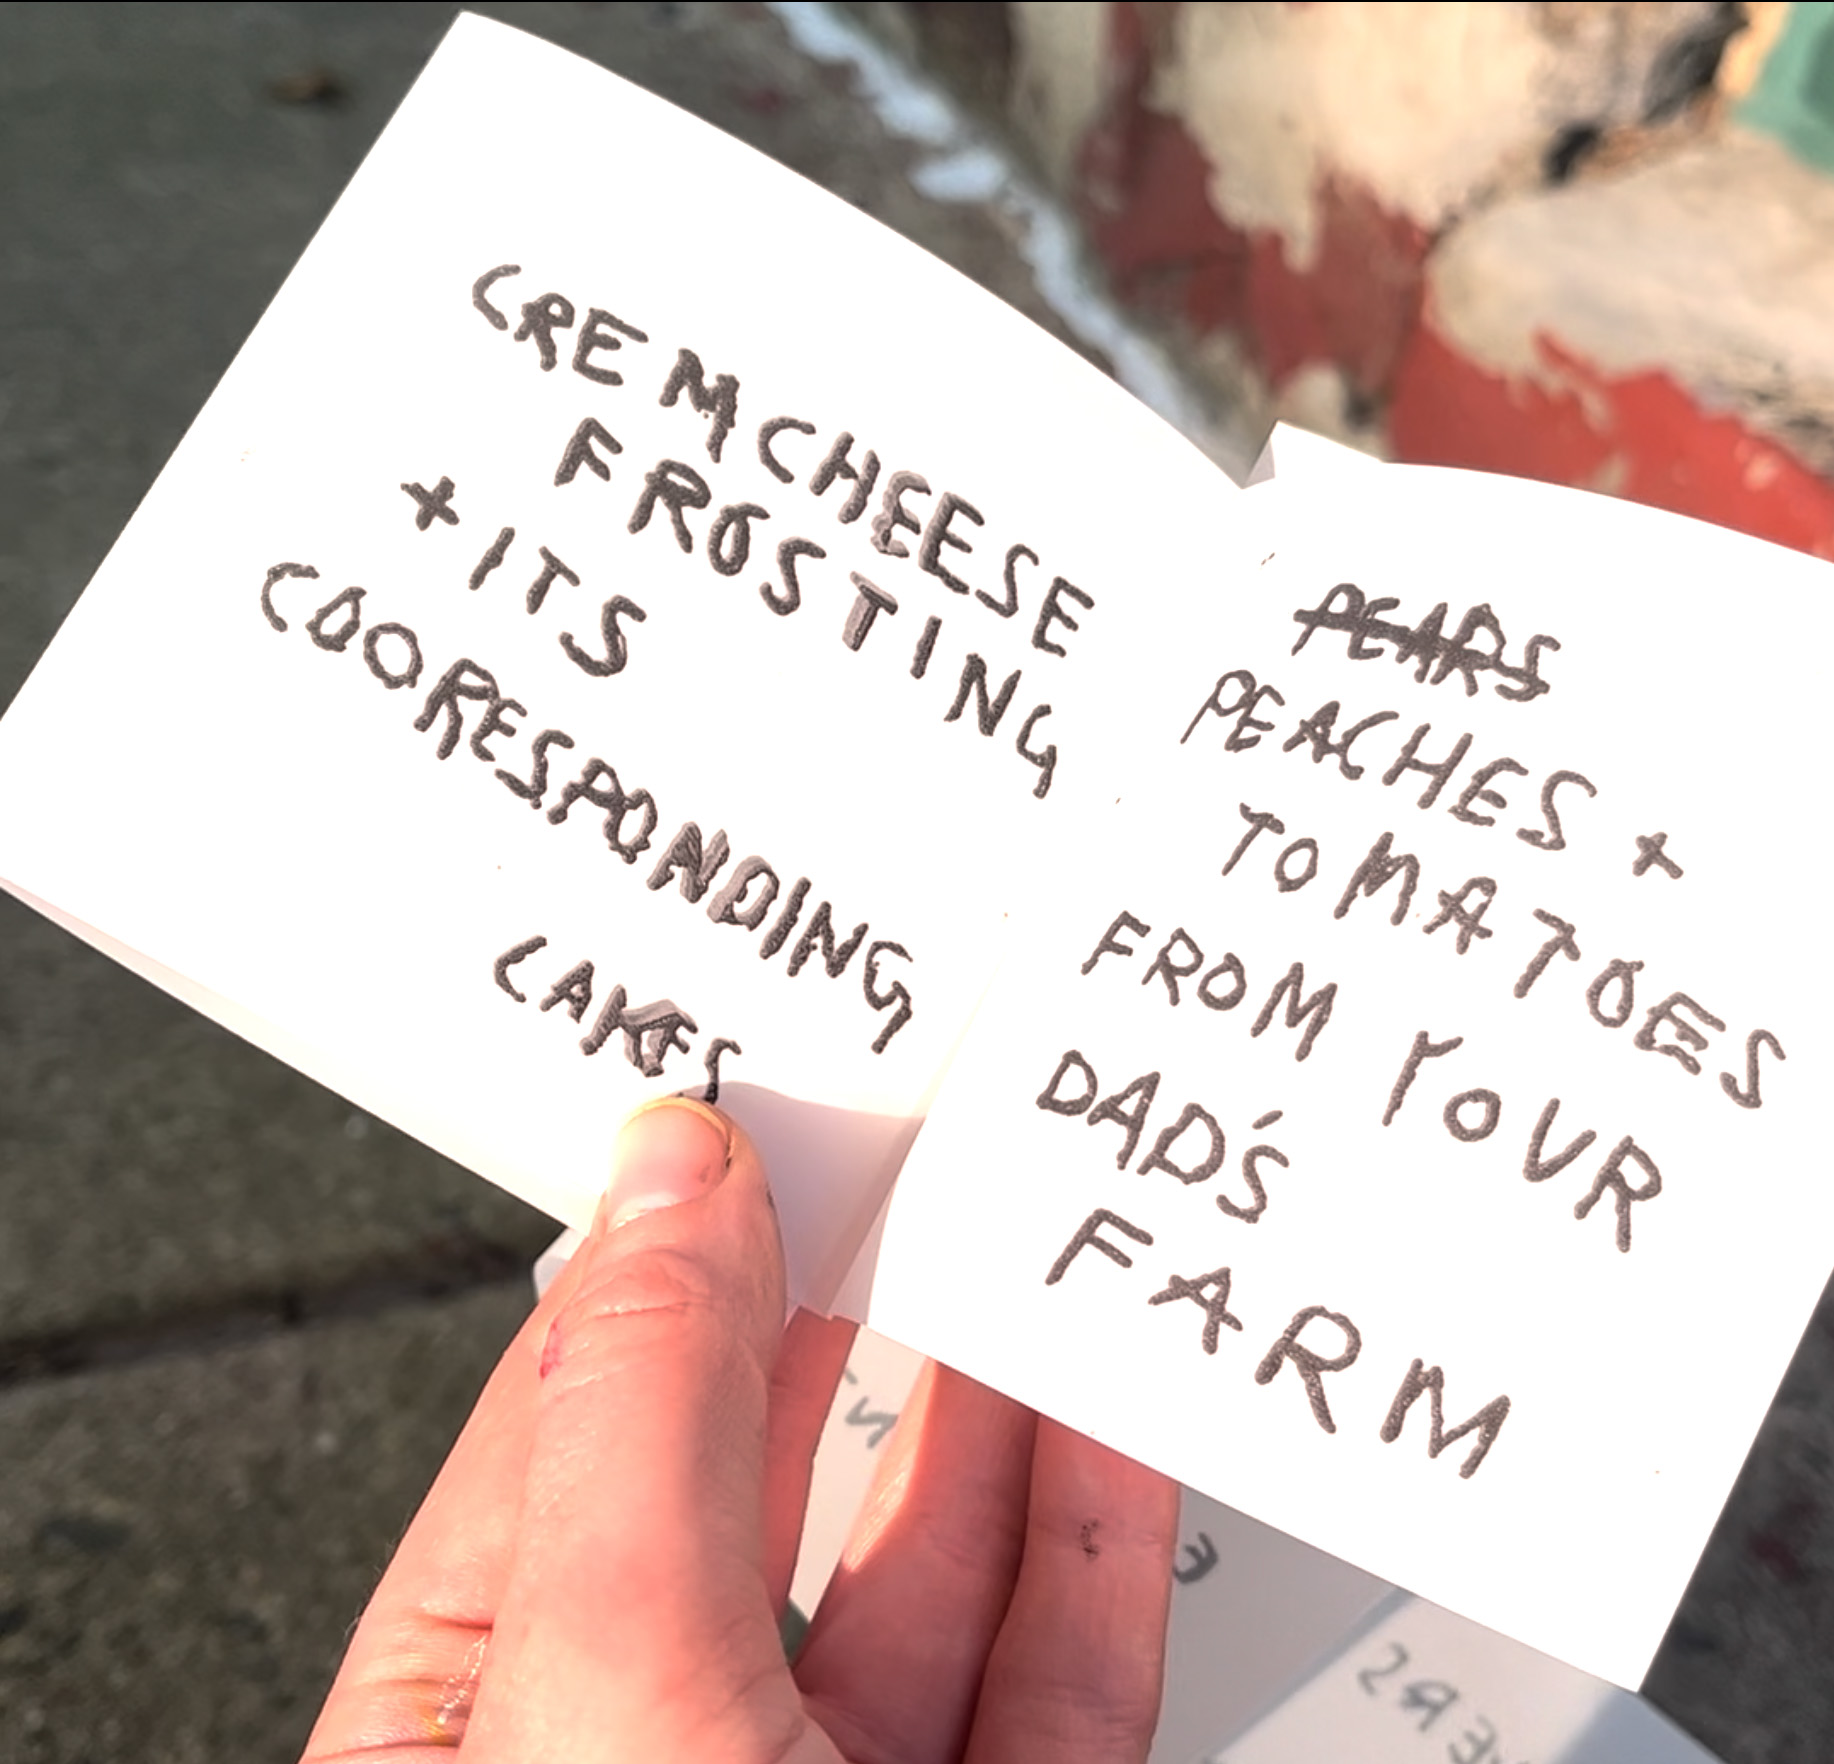 CREMCHEESE
FROSTING
+ ITS
COORESPONDING
CAKES
PEARS
PEACHES +
TOMATOES
FROM YOUR
DAD'S
FARM